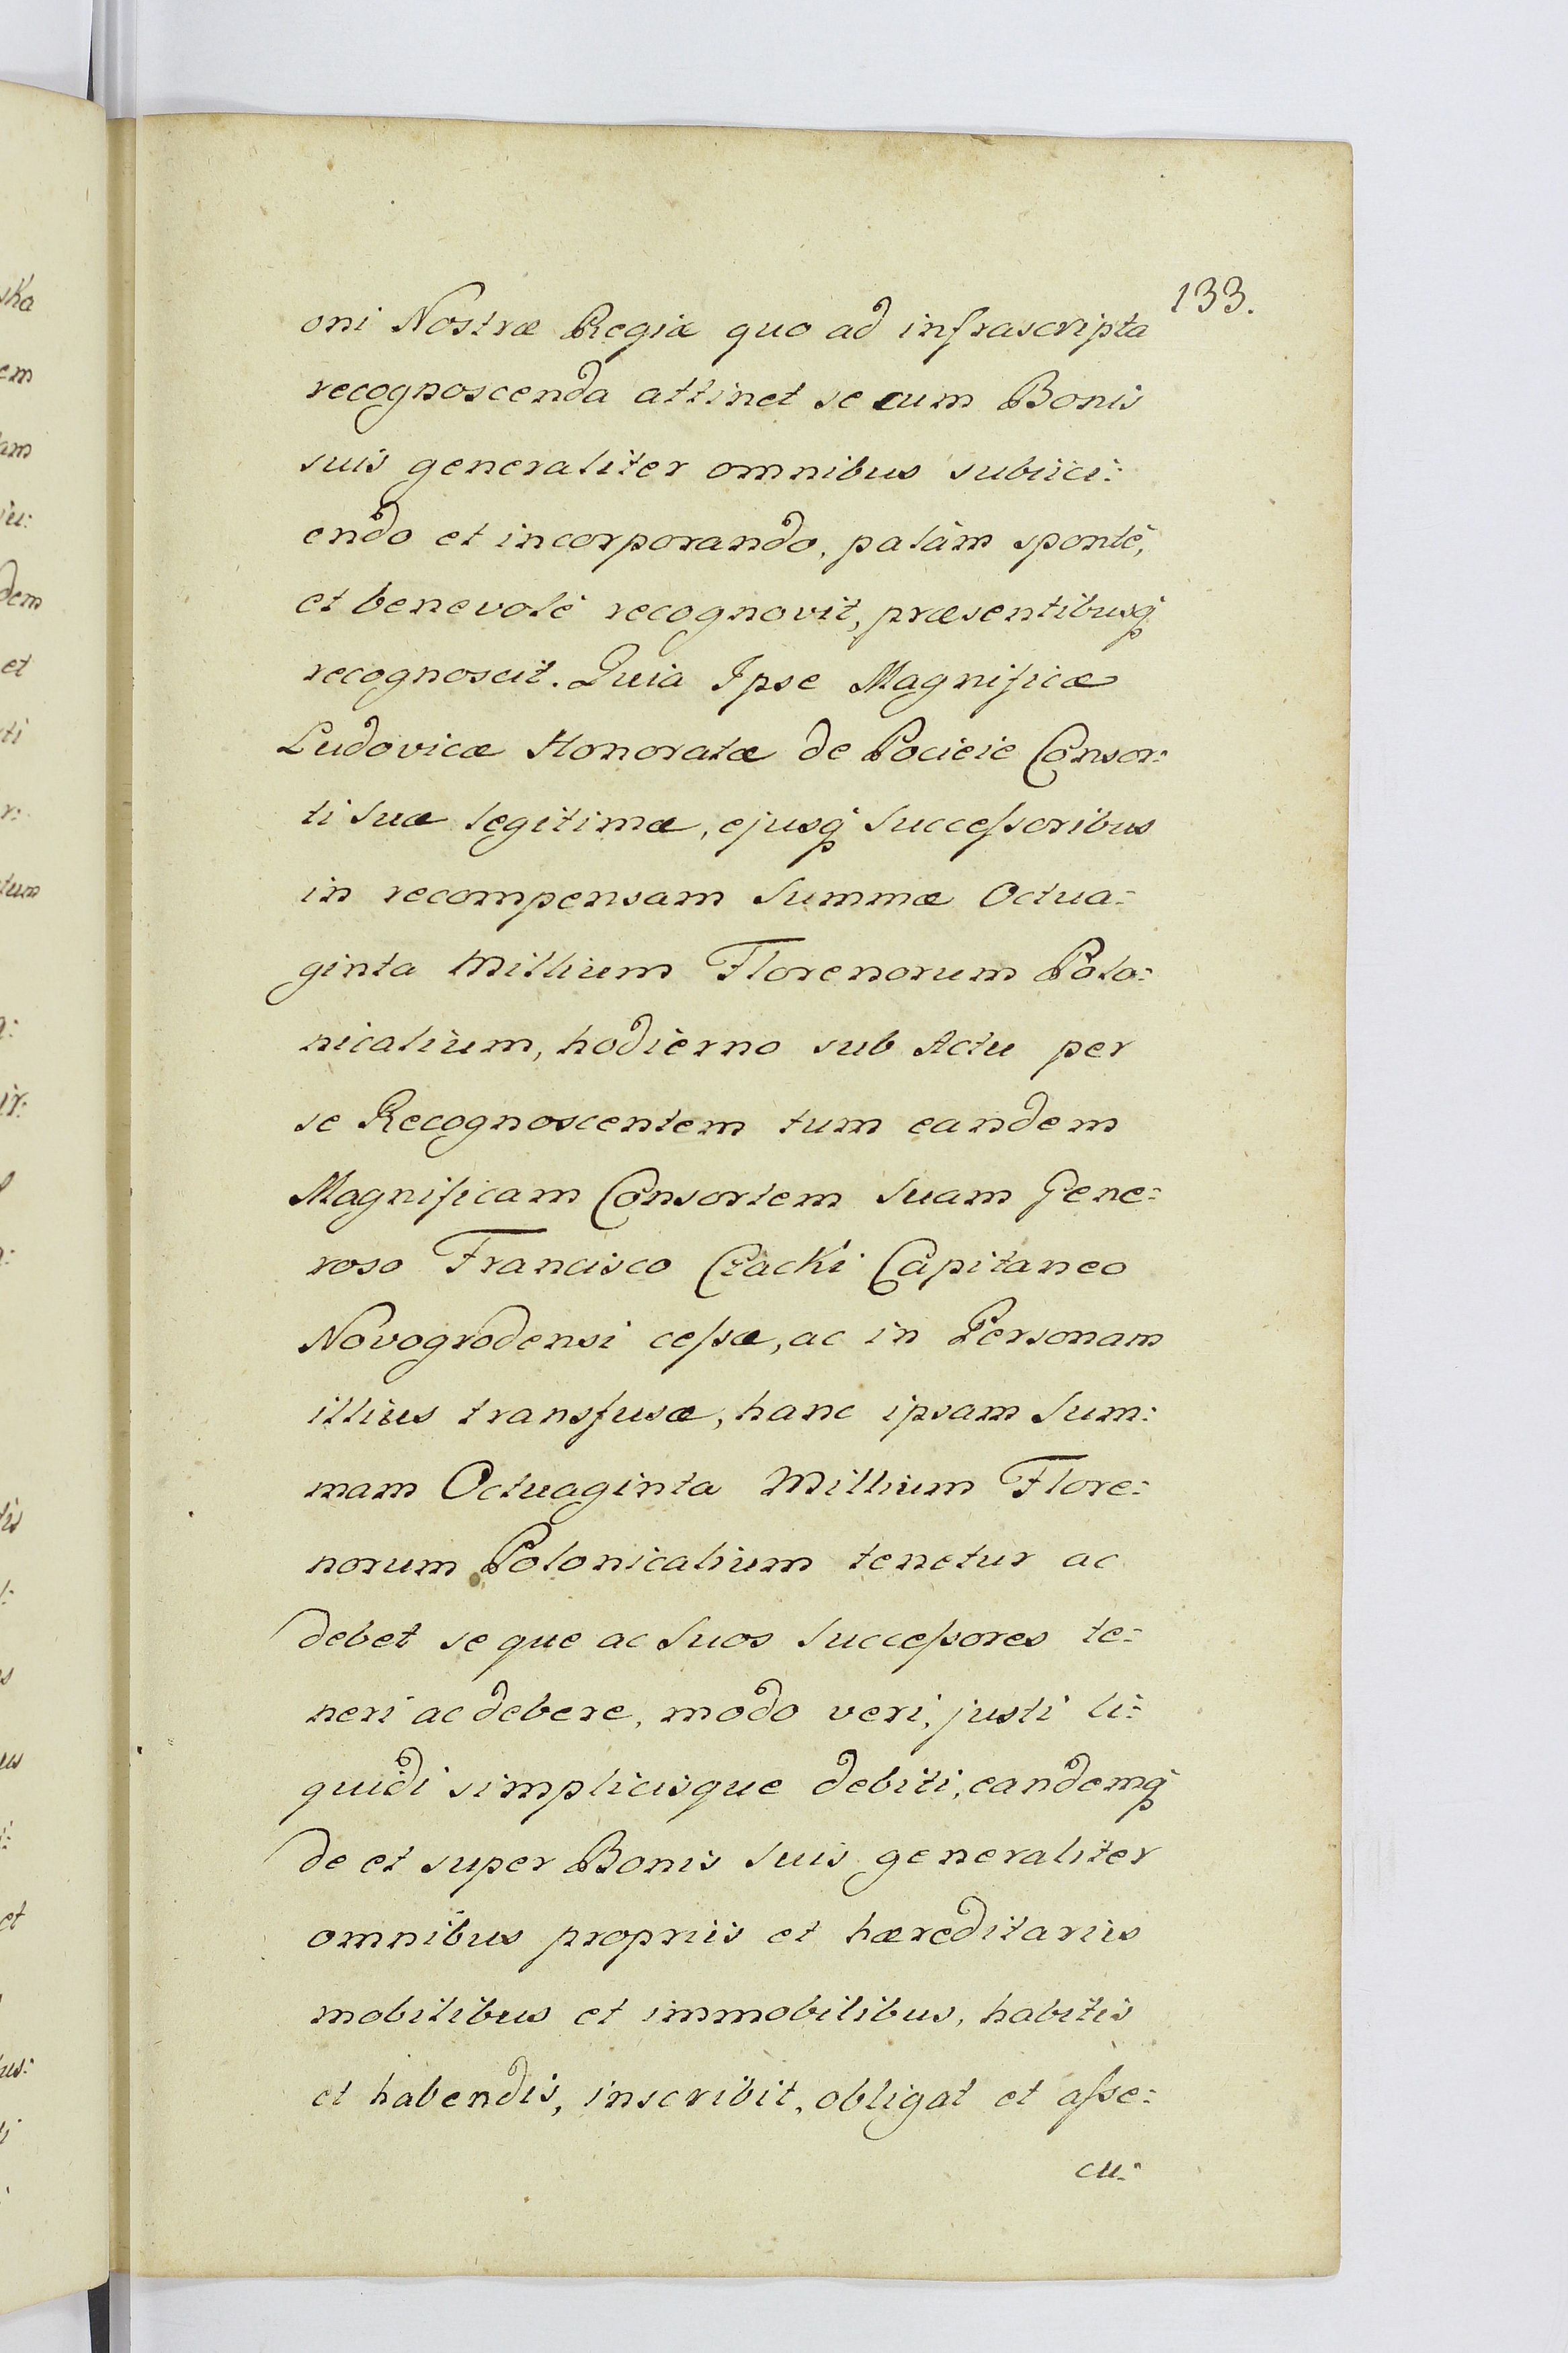 133.
oni Nostræ Regiæ quo ad infrascripta
recognoscenda attinet se cum Bonis
suis generaliter omnibus subiici:
endo et incorporando, palàm spontè,
et benevolè recognovit, præsentibusq́
recognoscit. Quia Ipse Magnificæ
Ludovicæ Honoratæ de Pocieie Consor:
ti suæ legitimæ, ejusq́ Succeſsoribus
in recompensam Summæ Octua:
ginta Millium Florenorum Polo:
nicalium, hodierno sub Actu per
se Recognoscentem tum eandem
Magnificam Consortem Suam Gene:
roso Francisco Czacki Capitaneo
Novogrodensi ceſsæ, ac in Personam
illius transfusæ, hanc ipsam Sum:
mam Octuaginta Millium Flore:
norum Polonicalium tenetur ac
debet se que ac Suos Succeſsores te:
neri ac debere, modo veri, justi li:
quidi simplicisque debiti, eandemq́
de et super Bonis Suis generaliter
omnibus propriis et hæreditariis
mobilibus et immobilibus, habitis
et habendis, inscribit, obligat et aſse:
cu: